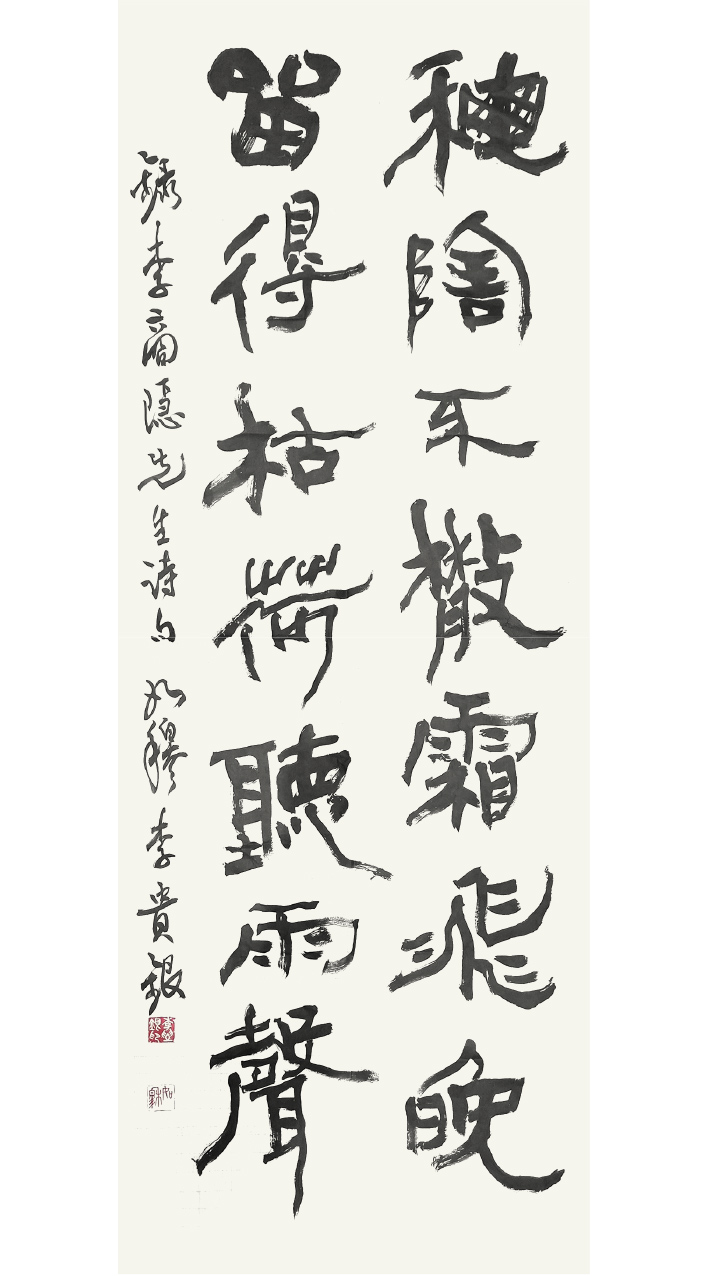 穐陰不散霜飛晚
留得枯荷聽雨聲
錄李商隱先生詩句 如穆李貴銀